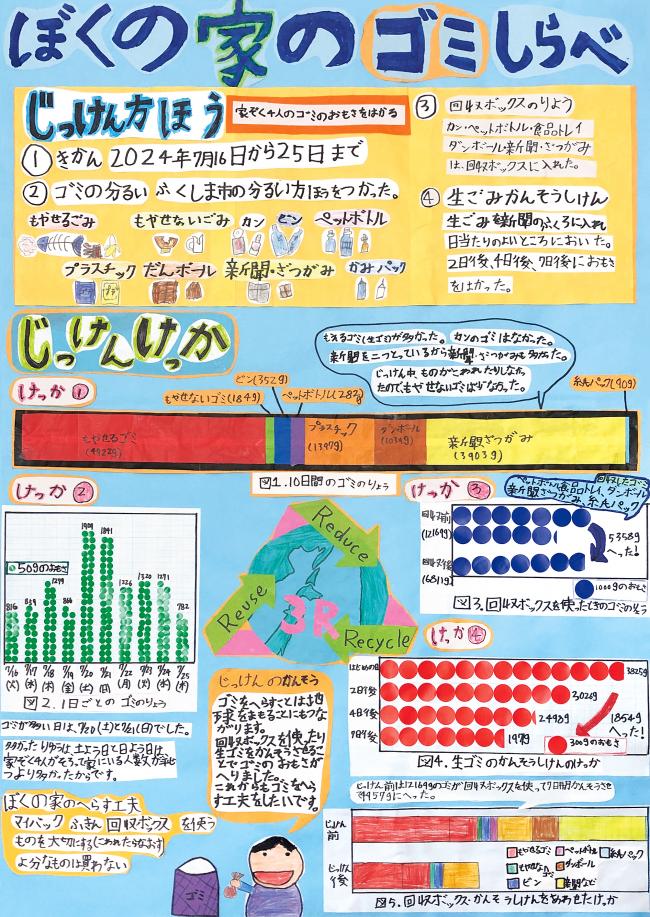 ぼくの家のゴミしらべ
じっけん方ほう
家ぞく4人のゴミのおもさをはかる
① きかん 2024年7月16日から25日まで
② ゴミの分るい ふくしま市の分るい方ほうをつかった。
もやせるごみ もやせないごみ カン ビン ペットボトル
プラスチック だんボール 新聞・ざつがみ かみパック
③ 回収ボックスのりよう
カン・ペットボトル・食品トレイ
ダンボール新聞・ざつがみ
は、回収ボックスに入れた。
④ 生ごみかんそうしけん
生ごみを新聞のふくろに入れ
日当たりのよいところにおいた。
2日後、4日後、7日後におもさ
をはかった。
じっけんけっか
もえるゴミ(生ゴミ)が多かった。カンのゴミはなかった。
新聞を二つとっているから新聞・ざつがみも多かった。
じっけん中、ものがこわれたりしなかっ
たので、もやせないゴミは少なかった。
けっか①
もやせないゴミ(184g)
ビン(352g)
ペットボトル(282g)
紙パック(90g)
もやせるゴミ
(4922g)
プラスチック
(1347g)
ダンボール
(1034g)
新聞、ざつがみ
(3903g)
図1.10日間のゴミのりょう
けっか②
50gのおもさ
816 859 1299 866 1909 1841 1226 1320 1271 782
7/16 7/17 7/18 7/19 7/20 7/21 7/22 7/23 7/24 7/25
(火) (水) (木) (金) (土) (日) (月) (火) (水) (木)
図2.1日ごとのゴミのりょう
ゴミが多い日は、7/20(土)と7/21(日)でした。
多かったりゆうは土よう日と日よう日は、
家ぞく4人がそって家にいる人数が平日
つより多かったからです。
Reduce
Reuse
Recycle
3R
けっか③
回収したゴミ
ペットボトル、食品トレイ、ダンボール
新聞ざつがみ、紙パック
回収前
(12169g)
回収後
(6811g)
5358g
へった!
1000gのおもさ
図3.回収ボックスを使ったときのゴミのりょう
けっか④
はじめの日
3825g
2日後
3028g
4日後
2498g
7日後
1979
1854g
へった!
300gのおもさ
図4.生ゴミのかんそうしけんのけっか
じっけんのかんそう
ゴミをへらすことは地
球をまもることにもつな
がります。
回収ボックスを使ったり
生ゴミをかんそうさせるこ
とでゴミのおもさが
へりました。
これからもゴミをへら
す工夫をしたいです。
ぼくの家のへらす工夫
マイバック ふきん 回収ボックス を使う
ものを大切にする(こわれたらなおす)
よ分なものは買わない
ゴミ
じっけん前は12169gのゴミが回収ボックスを使って7日間かんそうさせ
て4957gにへった。
じっけん
前
じっけん
後
もやせるゴミ ペットボトル 紙パック
もやせないゴミ ダンボール
ビン 新聞など
図5.回収ボックス・かんそうしけんをあわせたけっか